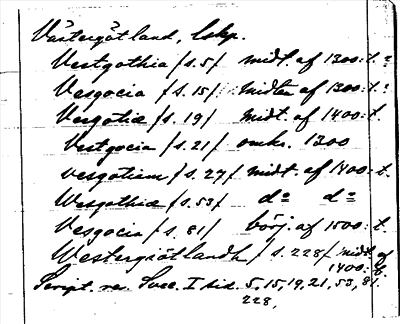 Västergötland, lskp.
Vestgothia /s.5/ midt. af 1300:t.
Vesgocia /s.15/ midten af 1300:t.
Vesgotie /s.19/ midt. af 1400:t.
Vestgocia /s.21/ omkr. 1300
vesgotiam /s.27/ midt. af 1400:t.
Wesgothia /s.53/ do do
Vesgocia /s.81/ börj. af 1500:t.
Westergiötlandh /s.228/ midt. af
1400:t.
Script. rer. Suec. I sid. 5, 15, 19, 21, 53, 81.
228,